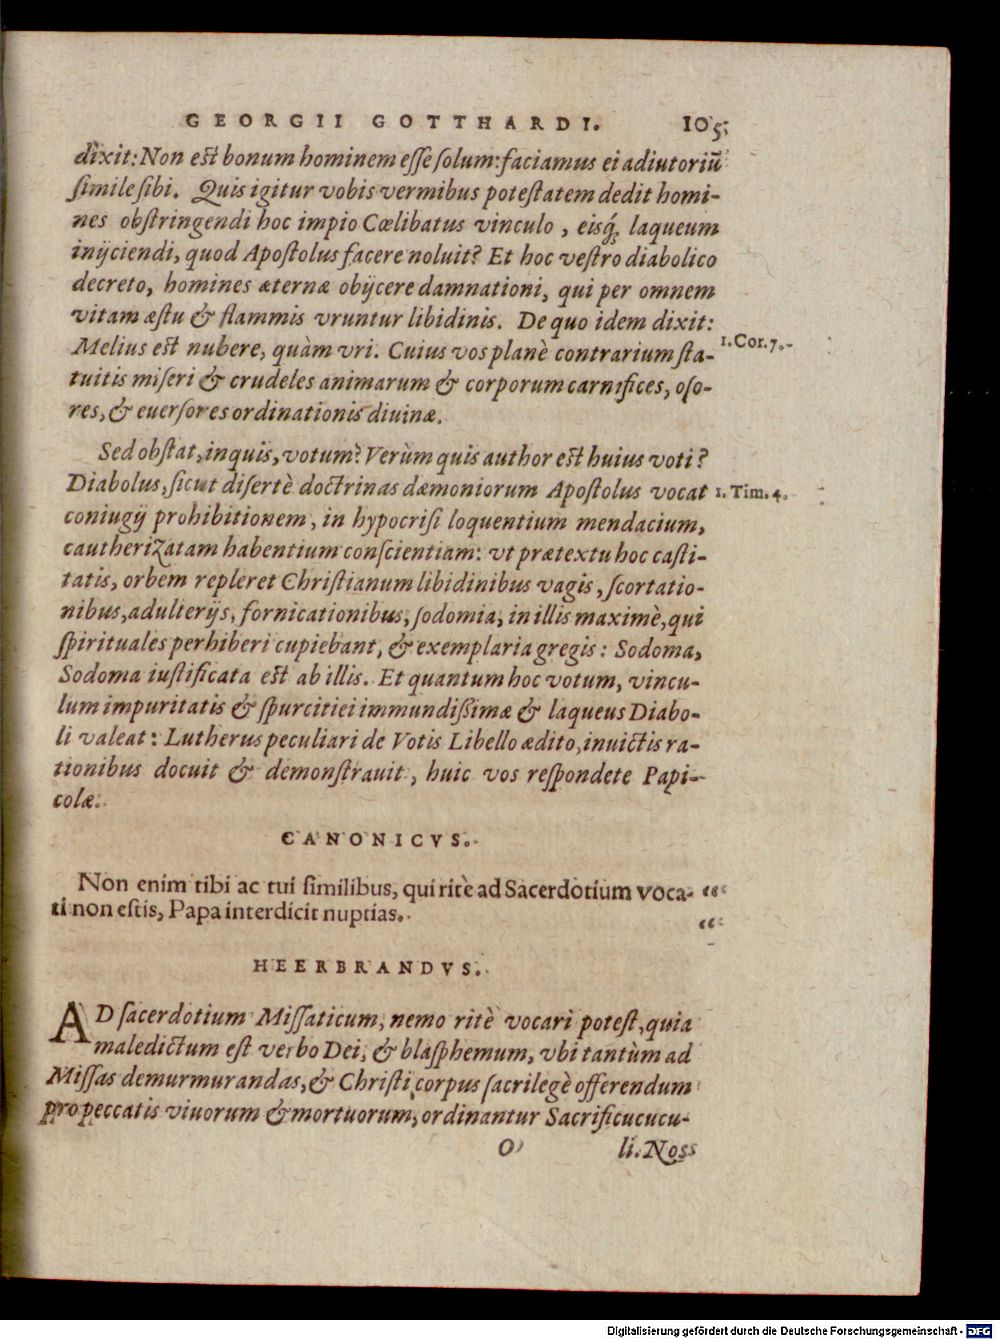 GEORGII GOTTHARDI. 105
dixit: Non est bonum hominem esse solum: faciamus ei adiutoriũ
simile sibi. Quis igitur vobis vermibus potestatem dedit homi-
nes obstringendi hoc impio Cœlibatus vinculo, eisq́; laqueum
inijciendi, quod Apostolus facere noluit? Et hoc vestro diabolico
decreto, homines æternæ obijcere damnationi, qui per omnem
vitam æstu & flammis vruntur libidinis. De quo idem dixit:
Melius est nubere, quàm vri. Cuius vos planè contrarium sta- 1. Cor. 7.
tuitis miseri & crudeles animarum & corporum carnifices, oso-
res, & euersores ordinationis diuinæ.
Sed obstat, inquis, votum? Verùm quis author est huius voti?
Diabolus, sicut disertè doctrinas dæmoniorum Apostolus vocat 1. Tim. 4.
coniugij prohibitionem, in hypocrisi loquentium mendacium,
cautherizatam habentium conscientiam: vt prætextu hoc casti-
tatis, orbem repleret Christianum libidinibus vagis, scortatio-
nibus, adulterijs, fornicationibus, sodomia, in illis maximè, qui
spirituales perhiberi cupiebant, & exemplaria gregis: Sodoma,
Sodoma iustificata est ab illis. Et quantum hoc votum, vincu-
lum impuritatis & spurcitiei immundißimæ & laqueus Diabo-
li valeat: Lutherus peculiari de Votis Libello ædito, inuictis ra-
tionibus docuit & demonstrauit, huic vos respondete Papi-
colæ.
CANONICVS.
Non enim tibi ac tui similibus, qui ritè ad Sacerdotium voca- “
ti non estis, Papa interdicit nuptias. “
HEERBRANDVS.
AD sacerdotium Missaticum, nemo ritè vocari potest, quia
maledictum est verbo Dei, & blasphemum, vbi tantùm ad
Missas demurmurandas, & Christi corpus sacrilegè offerendum
pro peccatis viuorum & mortuorum, ordinantur Sacrificucucu-
O li. Nos
Digitalisierung gefördert durch die Deutsche Forschungsgemeinschaft - DFG